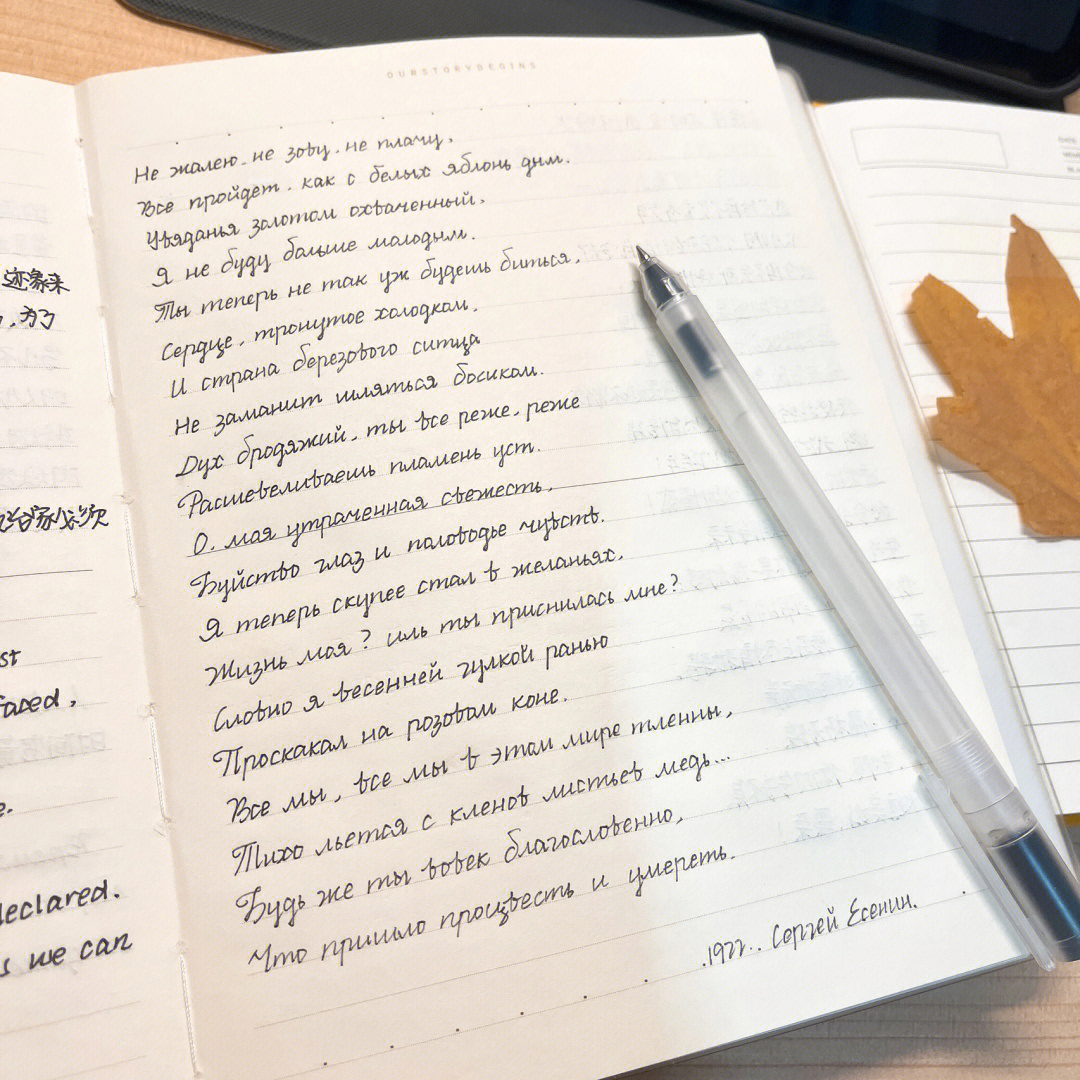 OURSTORYBEGINS
Не жалею, не зову, не плачу,
Все пройдет, как с белых яблонь дым.
Увяданья золотом охваченный,
Я не буду больше молодым.
Ты теперь не так уж будешь биться,
Сердце, тронутое холодком,
И страна березового ситца
Не заманит шляться босиком.
Дух бродяжий, ты все реже, реже
Расшевеливаешь пламень уст.
О, моя утраченная свежесть,
Буйство глаз и половодье чувств.
Я теперь скупее стал в желаньях,
Жизнь моя? иль ты приснилась мне?
Словно я весенней гулкой ранью
Проскакал на розовом коне.
Все мы, все мы в этом мире тленны,
Тихо льется с кленов листьев медь...
Будь же ты вовек благословенно,
Что пришло процвесть и умереть.
.1922.. Сергей Есенин.
declared.
we can
DATE